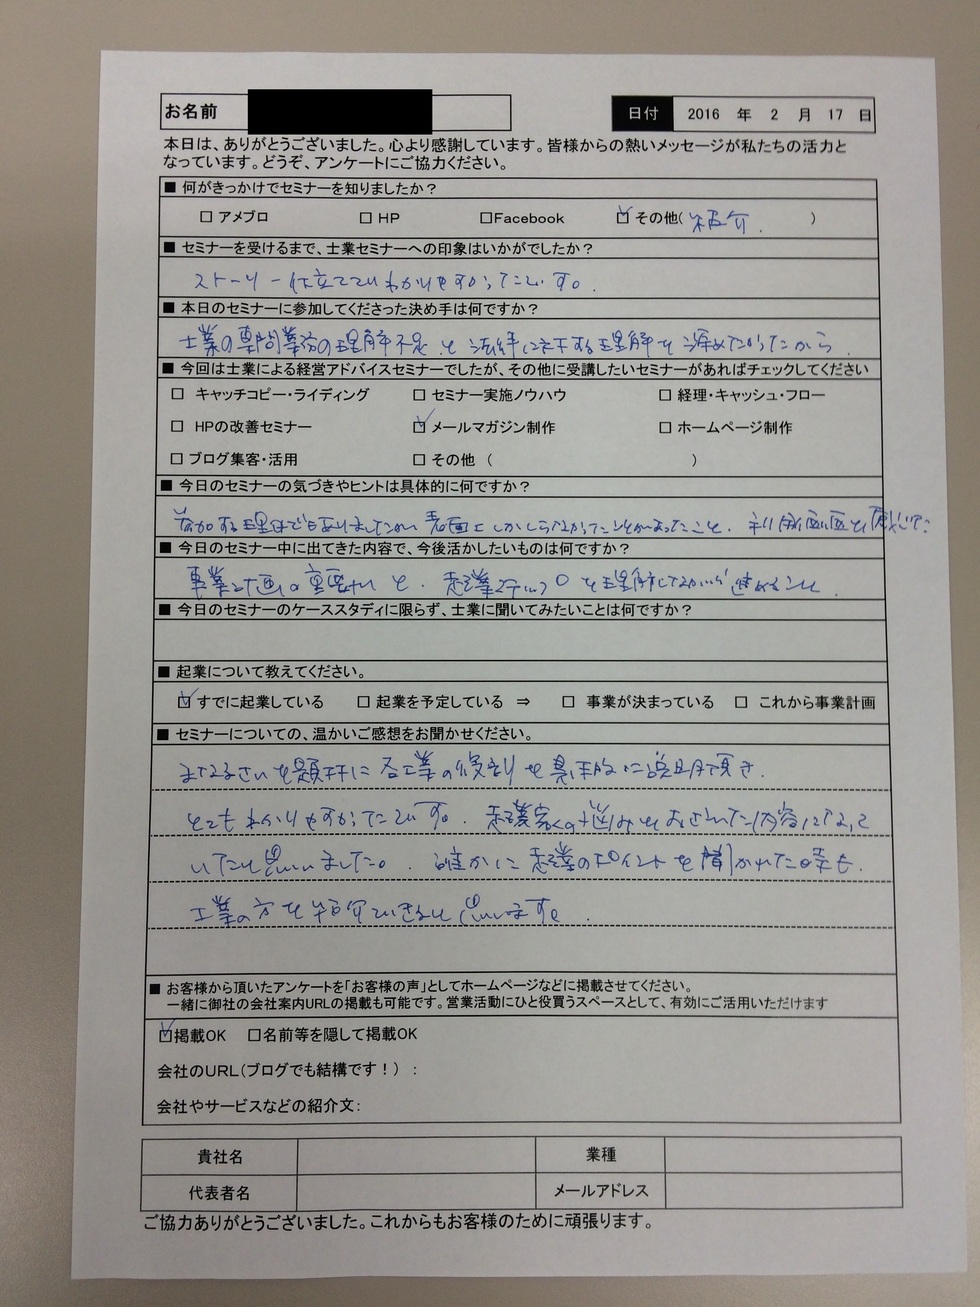 お名前
日付 2016 年 2 月 17 日
本日は、ありがとうございました。心より感謝しています。皆様からの熱いメッセージが私たちの活力と
なっています。どうぞ、アンケートにご協力ください。
■ 何がきっかけでセミナーを知りましたか？
□ アメブロ □ HP □Facebook ☑ その他( 紹介. )
■ セミナーを受けるまで、士業セミナーへの印象はいかがでしたか？
ストーリー仕立てでわかりやすかったです。
■ 本日のセミナーに参加してくださった決め手は何ですか？
士業の専門業務の理解不足と法律に対する理解を深めたかったから.
■ 今回は士業による経営アドバイスセミナーでしたが、その他に受講したいセミナーがあればチェックしてください
□ キャッチコピー・ライディング □ セミナー実施ノウハウ □ 経理・キャッシュ・フロー
□ HPの改善セミナー ☑ メールマガジン制作 □ ホームページ制作
□ ブログ集客・活用 □ その他 ( )
■ 今日のセミナーの気づきやヒントは具体的に何ですか？
参加する理由でもありましたが、表面上しかしらなかったことがあったこと.
■ 今日のセミナー中に出てきた内容で、今後活かしたいものは何ですか？
事業計画の重要性と. 起業ステップを理解しながら進めること.
■ 今日のセミナーのケーススタディに限らず、士業に聞いてみたいことは何ですか？
■ 起業について教えてください。
☑ すでに起業している □ 起業を予定している ⇒ □ 事業が決まっている □ これから事業計画
■ セミナーについての、温かいご感想をお聞かせください。
を題材に各士業の役割を具体的に説明頂き.
とてもわかりやすかったです。起業家の悩みを内容になって
いたと思いました。確かに起業のポイントを聞かれた時も.
士業の方を紹介できると思います。
■ お客様から頂いたアンケートを「お客様の声」としてホームページなどに掲載させてください。
一緒に御社の会社案内URLの掲載も可能です。営業活動にひと役買うスペースとして、有効にご活用いただけます
☑掲載OK □名前等を隠して掲載OK
会社のURL(ブログでも結構です！) :
会社やサービスなどの紹介文:
貴社名 業種
代表者名 メールアドレス
ご協力ありがとうございました。これからもお客様のために頑張ります。